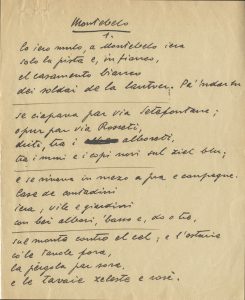 Montebelo
1.
Io iero mulo, a Montebelo iera
solo la pista e, in fianco,
el casamento bianco
dei soldai de la
se ciapava par via Setefontane;
opur par via Rosseti,
driti, tra i alboreti,
tra i muri e i copi neri sul ziel blu;
e se rivava in mezo a pra e campagne.
Case de contadini
iera, vile e giardini
con bei albori, basse e, do o tre,
sul monte contro el cel, e l'ostaria
co le tavole fora,
la pergola par sora,
e le tovaie zeleste e rosè.